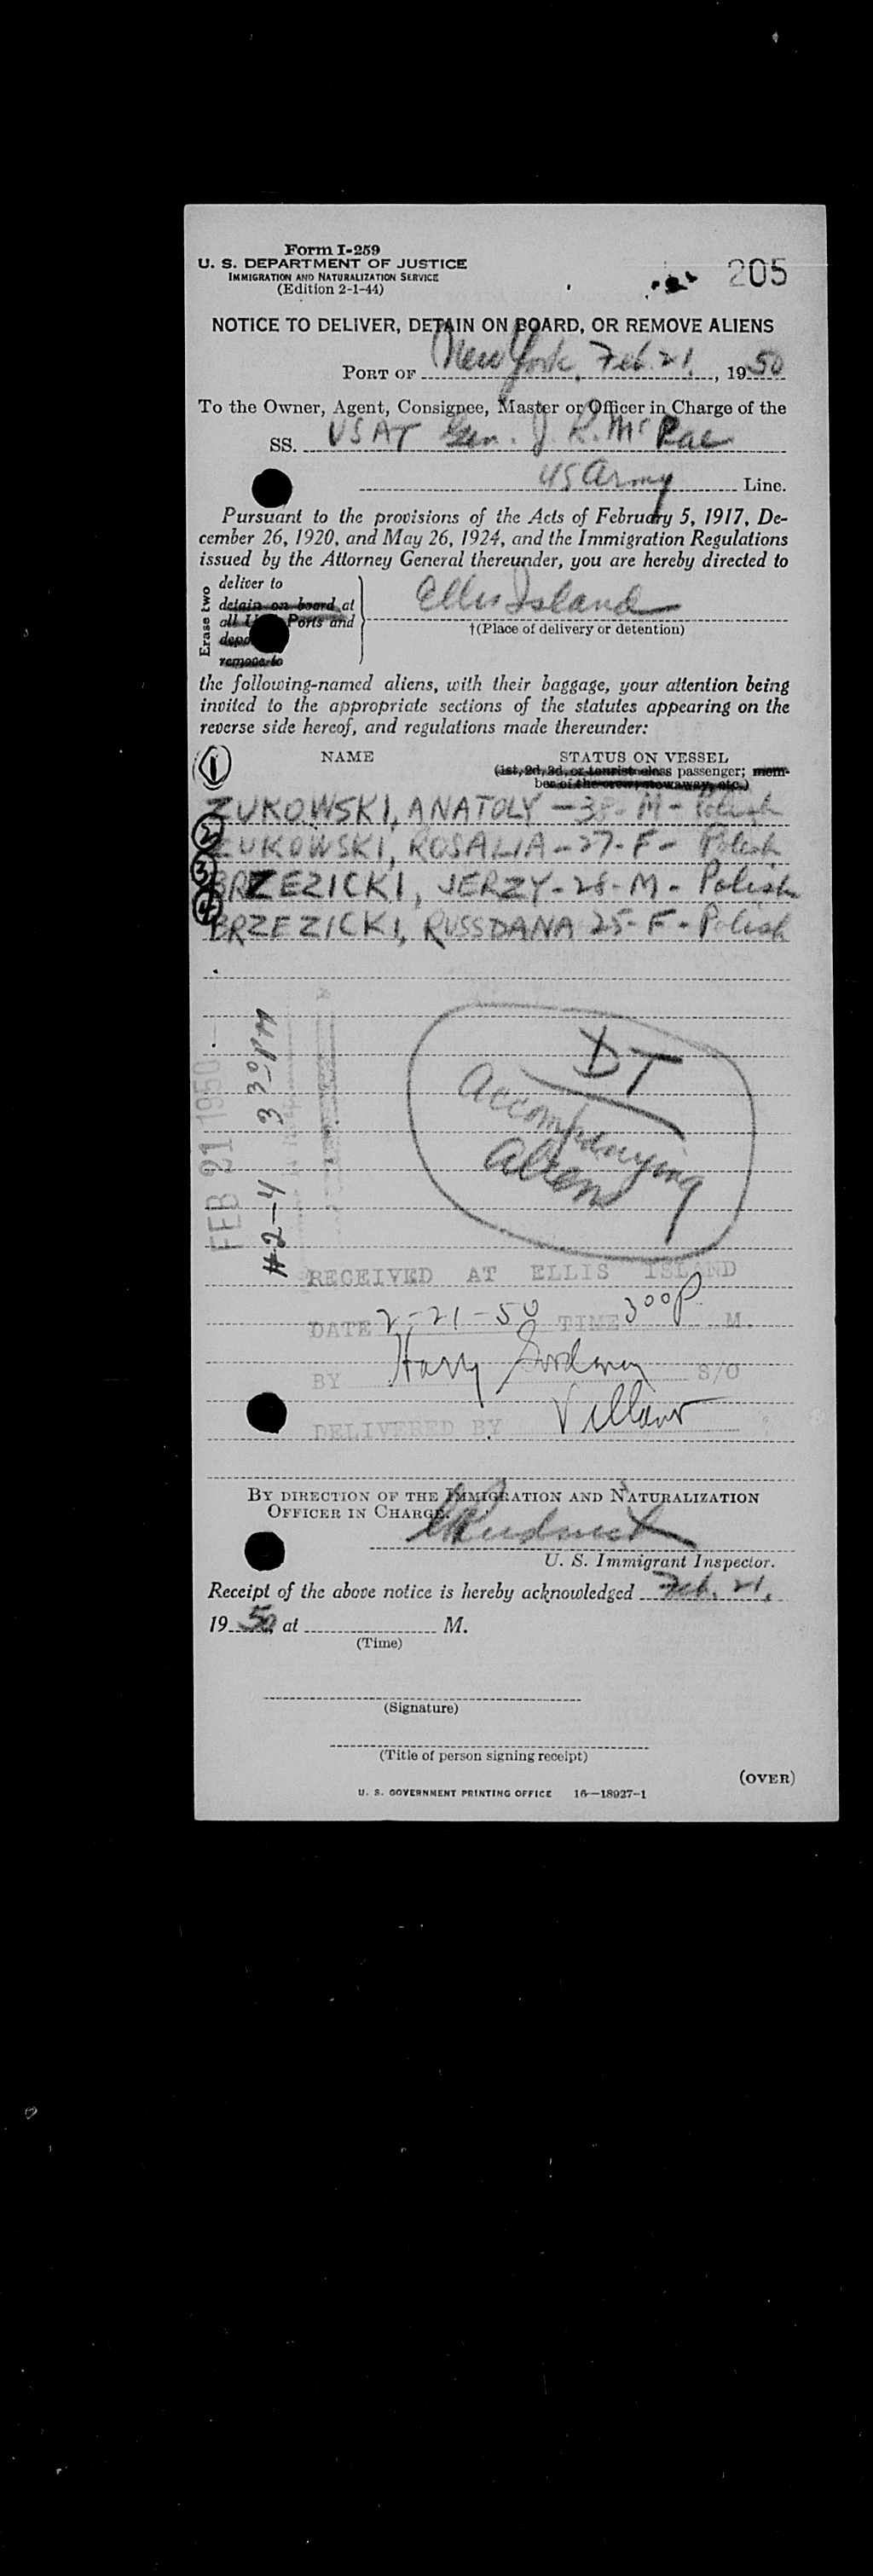 Form I-259
U. S. DEPARTMENT OF JUSTICE
IMMIGRATION AND NATURALIZATION SERVICE
(Edition 2-1-44)
205
NOTICE TO DELIVER, DETAIN ON BOARD, OR REMOVE ALIENS
PORT OF New York, Feb. 21, 1950
To the Owner, Agent, Consignee, Master or Officer in Charge of the
SS. USAT Gen. J. R. McRae
US Army Line.
Pursuant to the provisions of the Acts of February 5, 1917, De-
cember 26, 1920, and May 26, 1924, and the Immigration Regulations
issued by the Attorney General thereunder, you are hereby directed to
Erase two
deliver to
detain on board at
all Ports and
remove to
Ellis Island
†(Place of delivery or detention)
the following-named aliens, with their baggage, your attention being
invited to the appropriate sections of the statutes appearing on the
reverse side hereof, and regulations made thereunder:
1
NAME STATUS ON VESSEL
(1st, 2d, 3d, or tourist class passenger; mem-
ber of the crew, stowaway, etc.)
ZUKOWSKI, ANATOLY - M - Polish
2 ZUKOWSKI, ROSALIA - 27 - F - Polish
3 BRZEZICKI, JERZY - 28 - M - Polish
4 BRZEZICKI, RUSSDANA 25 - F - Polish
DT
accompanying
aliens
FEB 21 1950
#2-4 3 30 PM
RECEIVED AT ELLIS ISLAND
DATE 2-21-50 TIME 3 00 P. M.
BY Harry S/O
DELIVERED BY
BY DIRECTION OF THE IMMIGRATION AND NATURALIZATION
OFFICER IN CHARGE.
U. S. Immigrant Inspector.
Receipt of the above notice is hereby acknowledged Feb. 21,
1950, at M.
(Time)
(Signature)
(Title of person signing receipt)
(OVER)
U. S. GOVERNMENT PRINTING OFFICE 16—18927-1